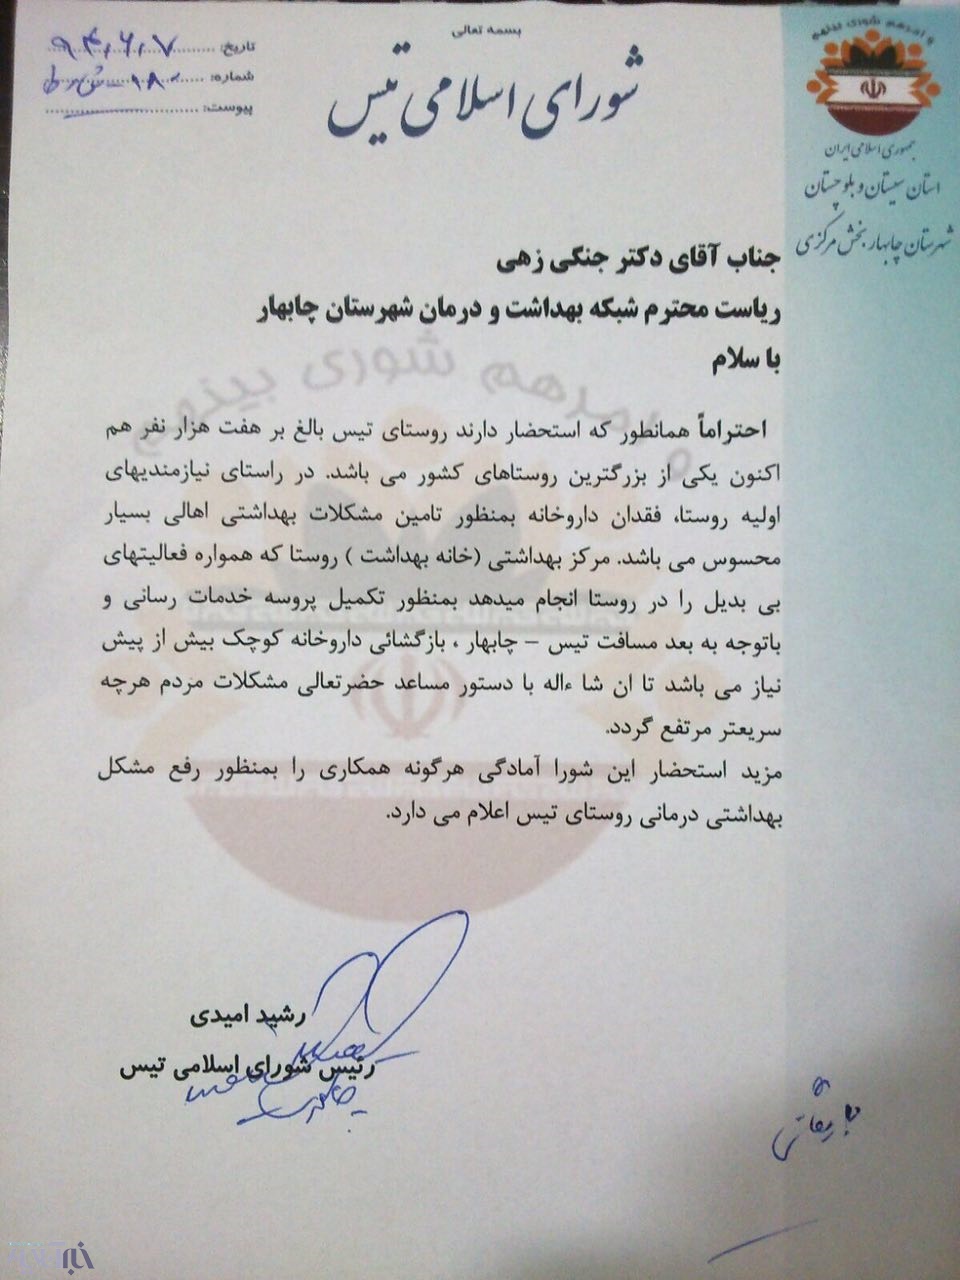 بسمه تعالی
شورای اسلامی تیس
تاریخ: ۹۴٫۶٫۷
شماره: ۱۸۰
پیوست:
و امرهم شوری بینهم
جمهوری اسلامی ایران
استان سیستان و بلوچستان
شهرستان چابهار بخش مرکزی
جناب آقای دکتر جنگی زهی
ریاست محترم شبکه بهداشت و درمان شهرستان چابهار
با سلام
احتراماً همانطور که استحضار دارند روستای تیس بالغ بر هفت هزار نفر هم
اکنون یکی از بزرگترین روستاهای کشور می باشد. در راستای نیازمندیهای
اولیه روستا، فقدان داروخانه بمنظور تامین مشکلات بهداشتی اهالی بسیار
محسوس می باشد. مرکز بهداشتی (خانه بهداشت ) روستا که همواره فعالیتهای
بی بدیل را در روستا انجام میدهد بمنظور تکمیل پروسه خدمات رسانی و
باتوجه به بعد مسافت تیس – چابهار ، بازگشائی داروخانه کوچک بیش از پیش
نیاز می باشد تا ان شا ءاله با دستور مساعد حضرتعالی مشکلات مردم هرچه
سریعتر مرتفع گردد.
مزید استحضار این شورا آمادگی هرگونه همکاری را بمنظور رفع مشکل
بهداشتی درمانی روستای تیس اعلام می دارد.
و امرهم شوری بینهم
رشید امیدی
رئیس شورای اسلامی تیس